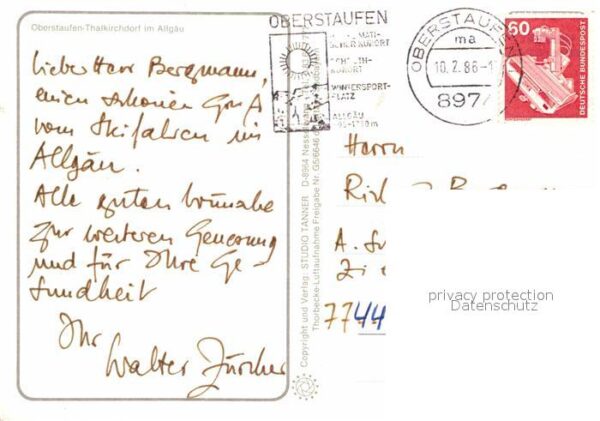 Oberstaufen-Thalkirchdorf im Allgäu
Lieber Herr Bergmann,
einen schönen Gruß
vom Skifahren im
Allgäu.
Alle guten Wünsche
zur weiteren Genesung
und für Ihre Ge-
sundheit
Ihr
Walter Zürcher
Copyright und Verlag: STUDIO TANNER D-8964 Nesse
Thorbecke-Luftaufnahme Freigabe Nr. G5/6646
OBERSTAUFEN
WINTERSPORT-
PLATZ
ALLGÄU
OBERSTAUFEN
ma
10.2.86-1
8974
60
DEUTSCHE BUNDESPOST
Herrn
A.
7744
privacy protection
Datenschutz